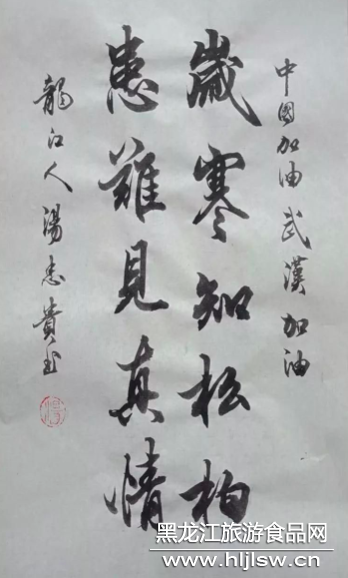 中國加油武漢加油
歲寒知松柏
患難見真情
龍江人湯忠貴书
黑龙江旅游食品网
www.hljlsw.cn